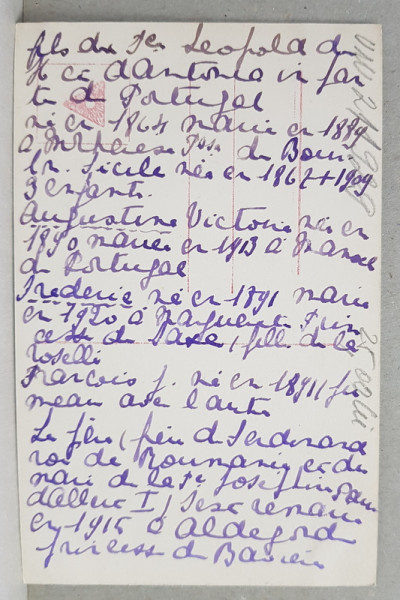 fils du Pce Leopold de
H et d'Antonia infan
te de Portugal
né en 1864 marié en 1889
a M Therese Pss de Bour
bn. Sicile née en 1867 + 1909
3 enfants.
Augustine Victoire née en
1890 mariée en 1913 à Manoel
de Portugal
Frederic né en 1891 marié
en 1920 à Marguerite Prin
cesse de Saxe, fille de la
roselli
Francois J. né en 1891 (ju
meau avec l'autre
Le père, frère de Ferdinand
roi de Roumanie et du
mari de la Pss Josephine Bau
d'Albert I) s'est remarié
en 1915 à Aldegonde
princesse de Baviere